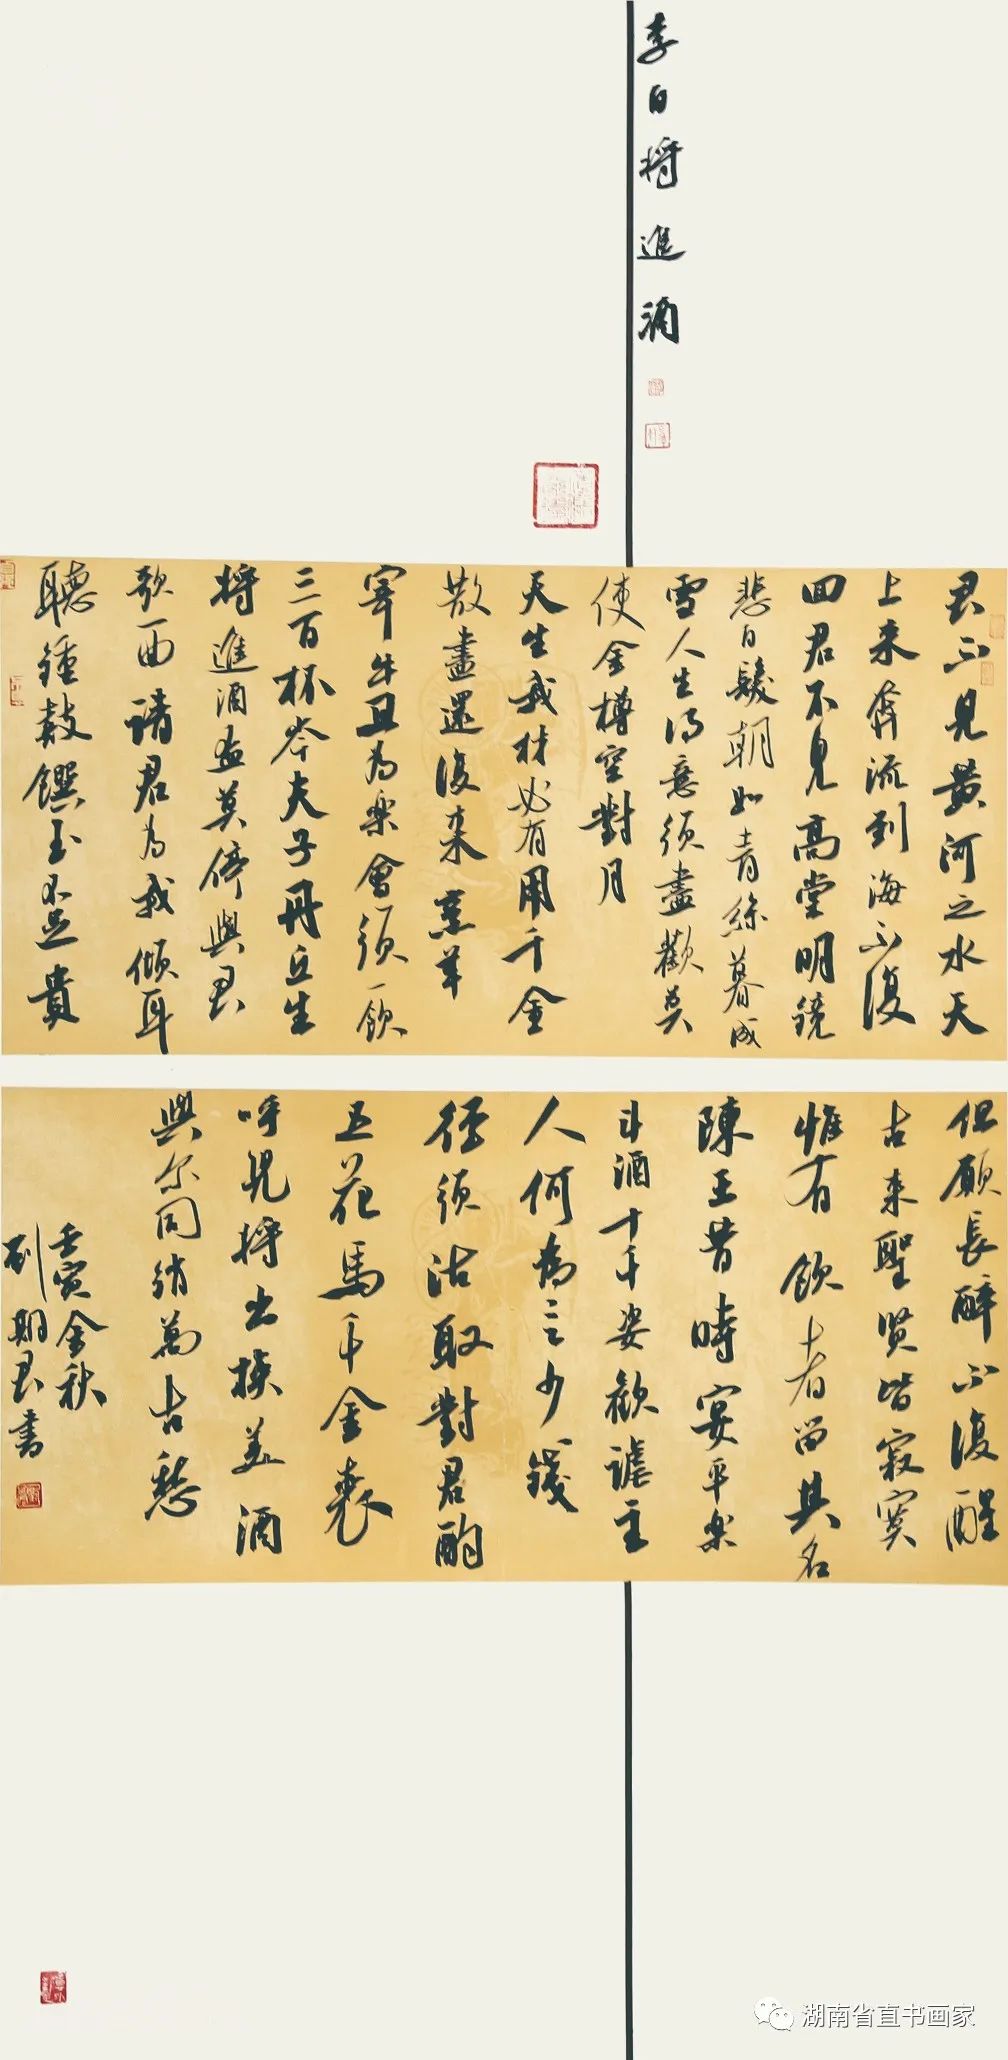 李白將進酒
君不見黄河之水天
上来奔流到海不復
回君不見高堂明鏡
悲白髮朝如青絲暮成
雪人生得意須盡歡莫
使金樽空對月
天生我材必有用千金
散盡還復来烹羊
宰牛且為樂會須一飲
三百杯岑夫子丹丘生
將進酒盃莫停與君
歌一曲請君為我傾耳
聽鍾鼓饌玉不足貴
但願長醉不復醒
古来聖賢皆寂寞
惟有飲者留其名
陳王昔時宴平樂
斗酒十千恣歡謔主
人何為言少錢
徑須沽取對君酌
五花馬千金裘
呼兒將出換美酒
與尔同銷萬古愁
壬寅金秋
劉期君書
湖南省直书画家